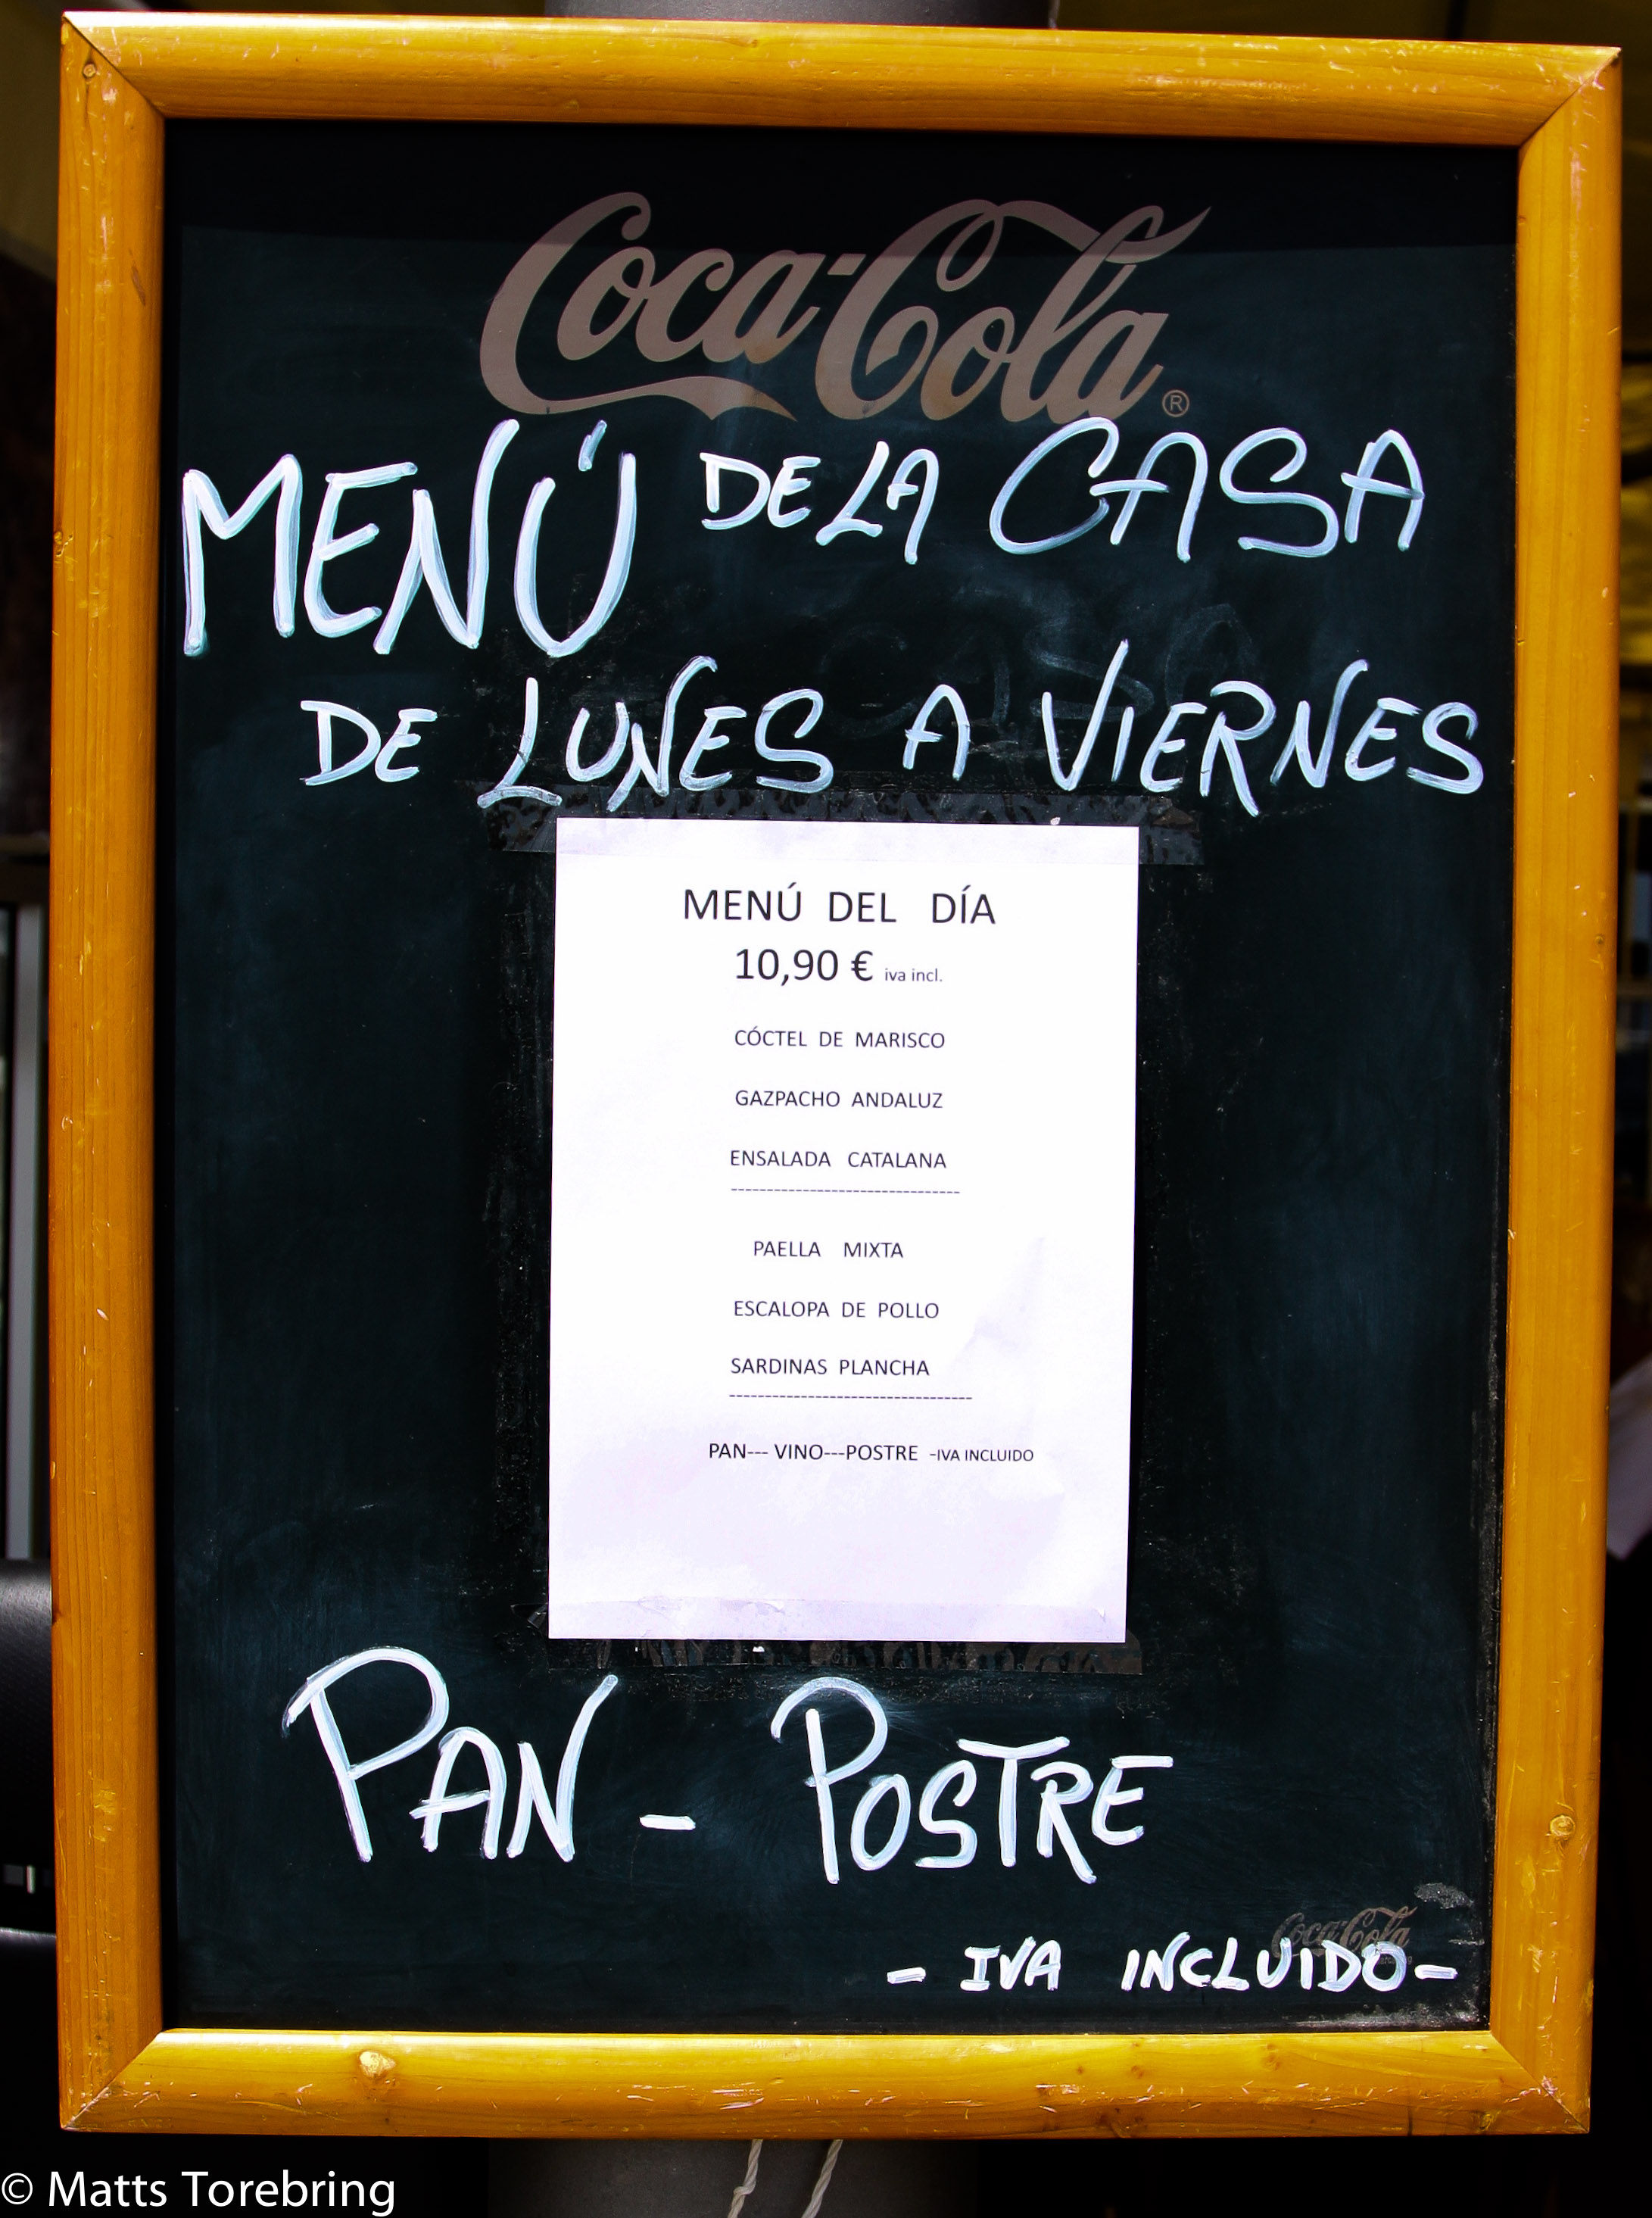 Coca-Cola®
MENÚ DE LA CASA
DE LUNES A VIERNES
MENÚ DEL DÍA
10,90 € iva incl.
CÓCTEL DE MARISCO
GAZPACHO ANDALUZ
ENSALADA CATALANA
--------------------------------
PAELLA MIXTA
ESCALOPA DE POLLO
SARDINAS PLANCHA
----------------------------------
PAN--- VINO---POSTRE -IVA INCLUIDO
PAN - POSTRE
Coca-Cola
- IVA INCLUIDO-
© Matts Torebring